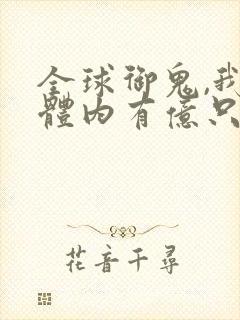 全球御鬼,我
體內有億只
花音千尋